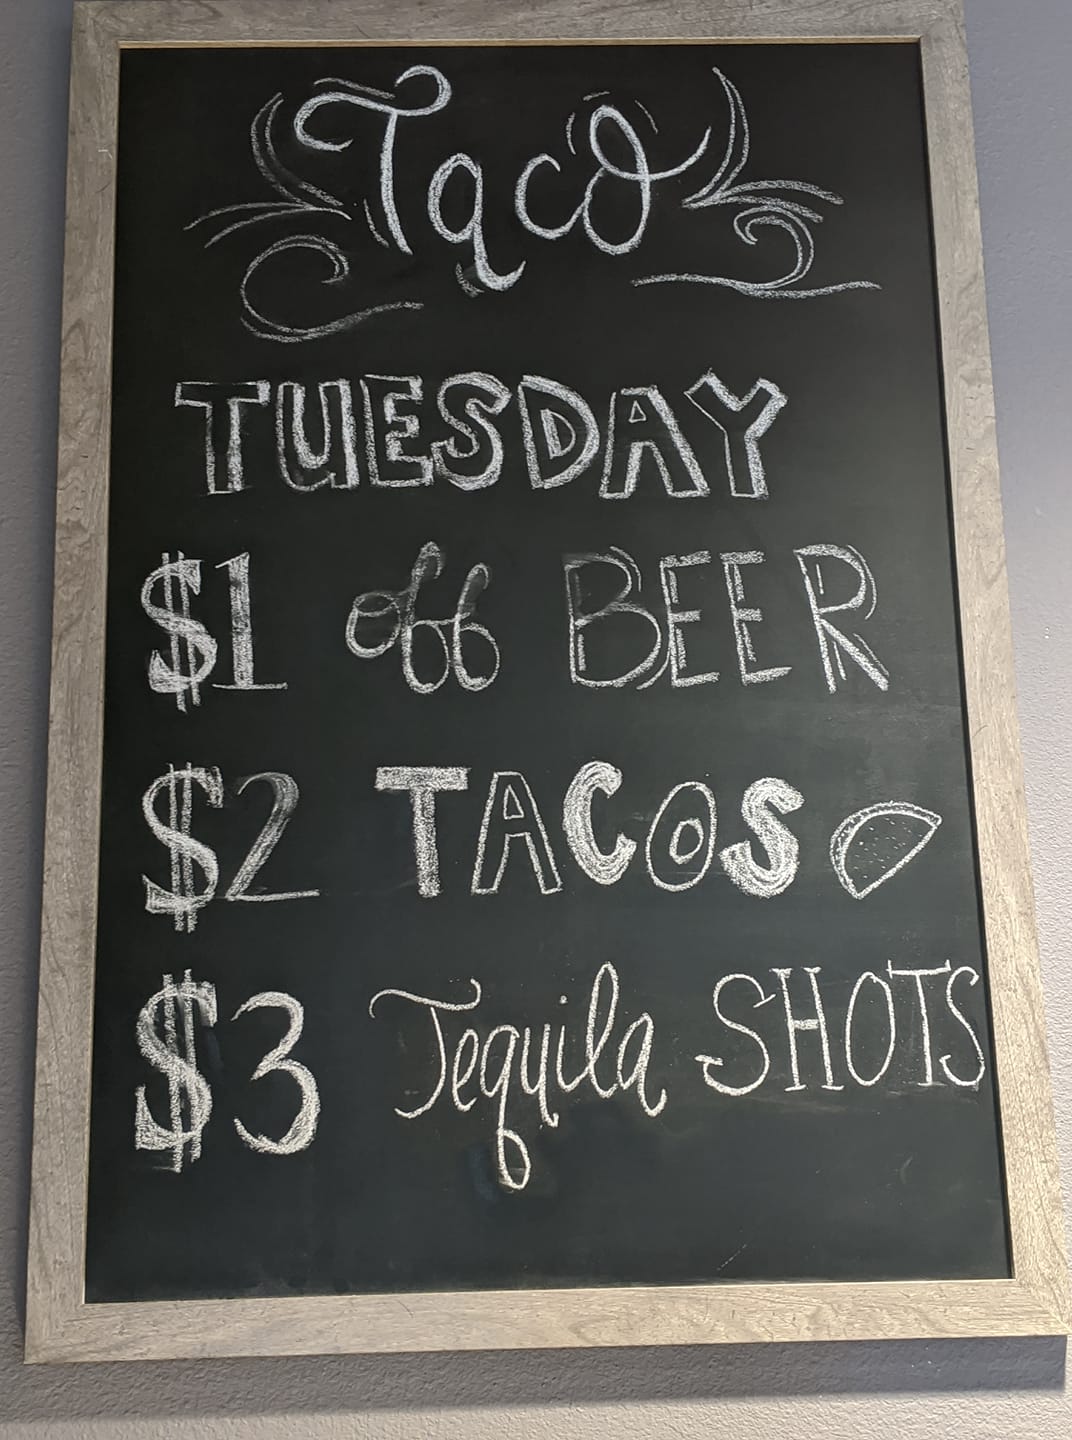 Taco
TUESDAY
$1 off BEER
$2 TACOS
$3 Tequila SHOTS